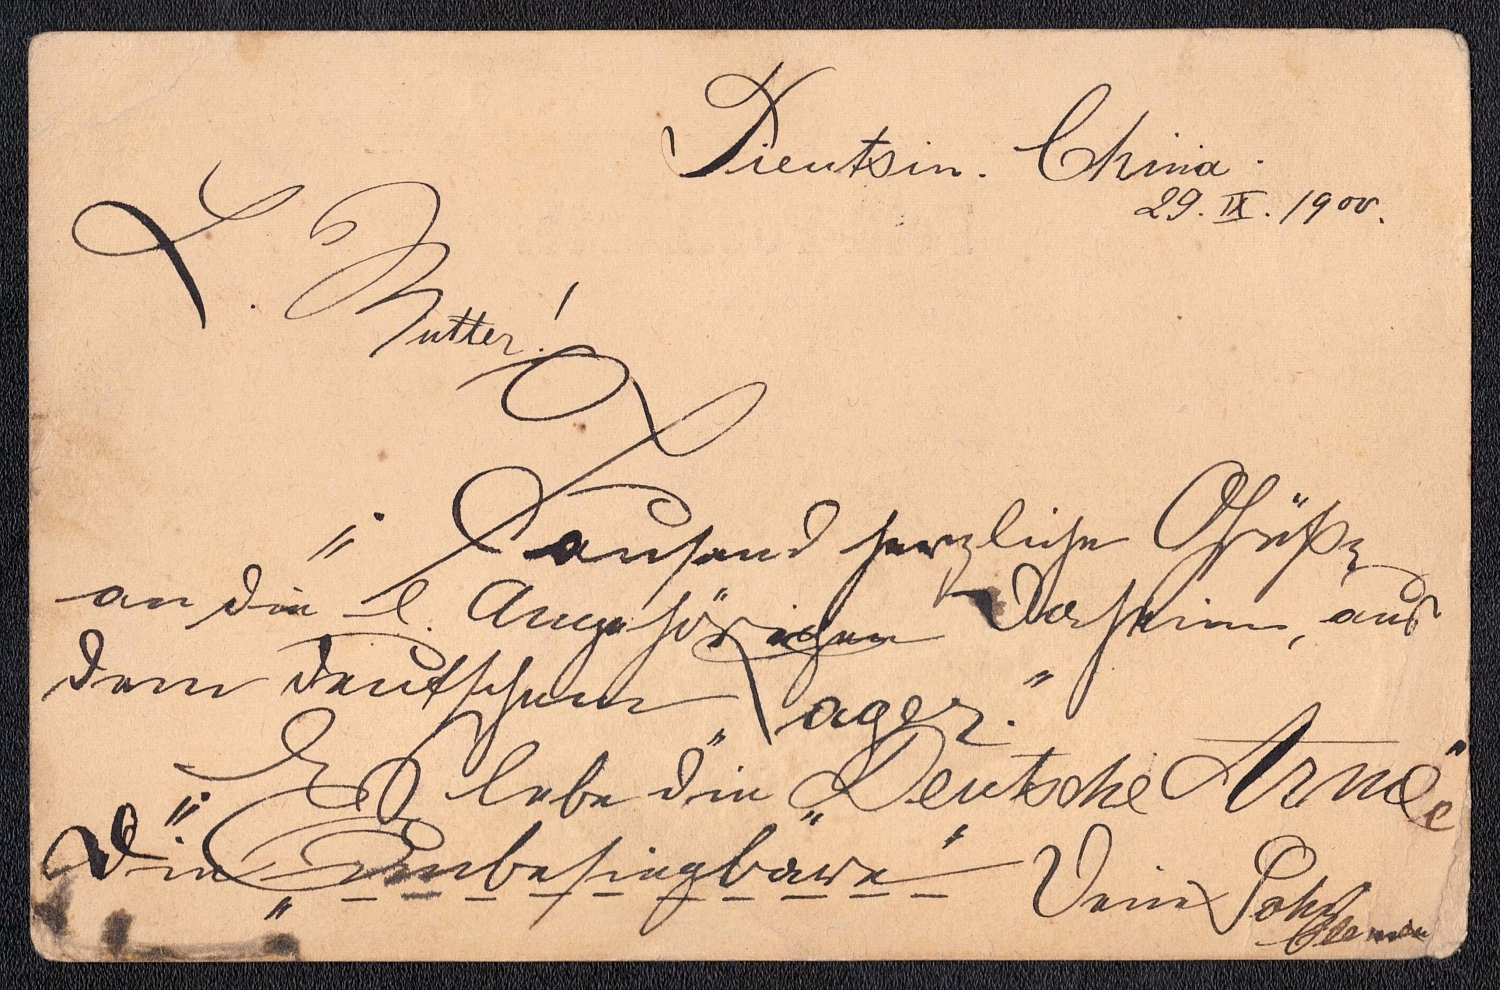 Tientsin. China.
29. IX. 1900.
L. Mutter!
"Tausend herzliche Grüße
an die l. Angehörigen Daheim, aus
dem deutschen Lager."
Es lebe die "Deutsche Armee"
"Die Unbesiegbare"
Dein Sohn
Clemen